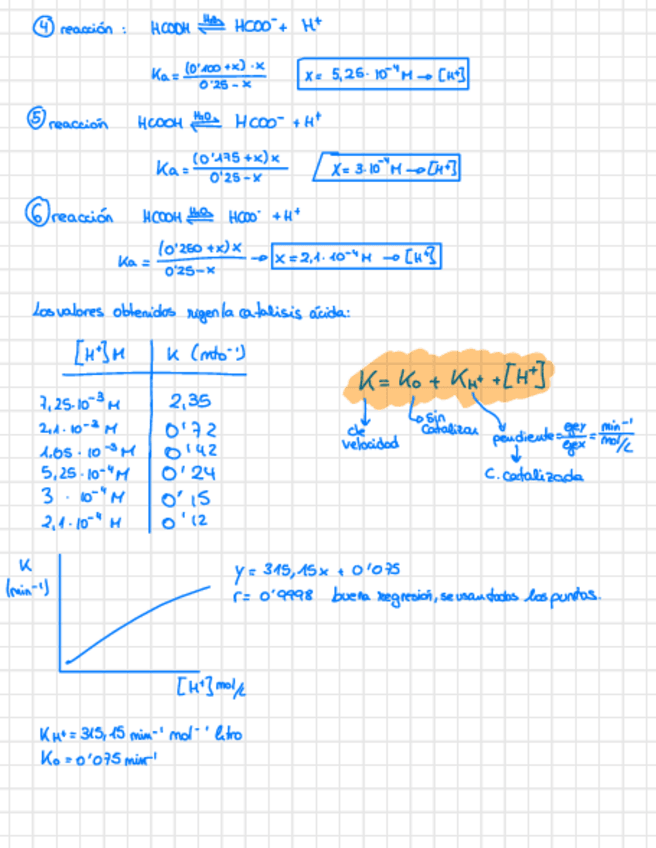 ④ reacción : HCOOH ⇌ HCOO⁻ + H⁺
H₂O
Ka = (0'100+x)·x / 0'25-x
x = 5,26·10⁻⁴ M → [H⁺]
⑤ reacción HCOOH ⇌ HCOO⁻ + H⁺
H₂O
Ka = (0'175+x)x / 0'25-x
x = 3·10⁻⁴ M → [H⁺]
⑥ reacción HCOOH ⇌ HCOO⁻ + H⁺
H₂O
Ka = (0'260+x)x / 0'25-x → x = 2,1·10⁻⁴ M → [H⁺]
Los valores obtenidos rigen la catalisis ácida:
[H⁺] M K (min⁻¹)
7,25·10⁻³ M 2,35
2,1·10⁻³ M 0'72
1,05·10⁻³ M 0'42
5,25·10⁻⁴ M 0'24
3·10⁻⁴ M 0'15
2,1·10⁻⁴ M 0'12
K = K₀ + K_H⁺ + [H⁺]
de velocidad
sin catalizar
pendiente = eje y / eje x = min⁻¹ / mol/L
C. catalizada
K
(min⁻¹)
[H⁺] mol/L
y = 315,15x + 0'075
r = 0'9998 buena regresión, se usan todos los puntos.
K_H⁺ = 315,15 min⁻¹ mol⁻¹ litro
K₀ = 0'075 min⁻¹